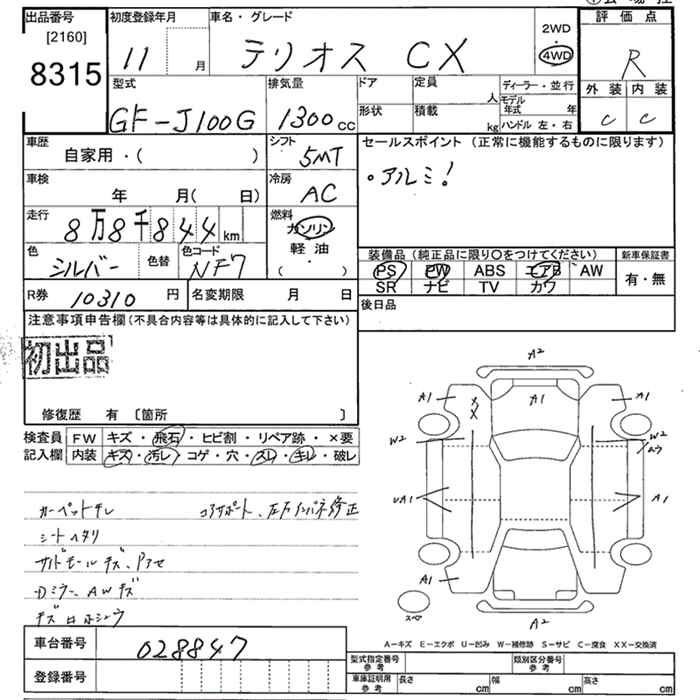 出品番号
[2160]
8315
初度登録年月
11 月
車名・グレード
テリオス CX
2WD
4WD
評価点
R
外装 内装
C C
型式
GF-J100G
排気量
1300 CC
ドア
形状
定員 人
積載 kg
ディーラー・並行
モデル年式 年
ハンドル 左・右
車歴
自家用・( )
シフト
5MT
セールスポイント (正常に機能するものに限ります)
・アルミ!
車検
年 月( 日)
冷房
AC
走行
8万8千844 km
燃料
ガソリン
軽油
・
( )
色
シルバー
色替
色コード
NF7
装備品 (純正品に限り○をつけてください)
PS PW ABS エアB AW
SR ナビ TV カワ
新車保証書
有・無
R券 10310 円
名変期限 月 日
後日品
注意事項申告欄 (不具合内容等は具体的に記入して下さい)
初出品
修復歴 有 〔箇所 〕
検査員
記入欄
FW キズ・飛石・ヒビ割・リペア跡・×要
内装 キズ・汚レ・コゲ・穴・スレ・キレ・破レ
カーペットキレ
コアサポート、左右インパネ修正
シートヘタリ
サイドモールキズ、アセ
Dミラー、AWキズ
A2
A1 A1 A1
W2 W2
UA1 A1
A1
スペア
A2
A-キズ E-エクボ U-凹み W-補修跡 S-サビ C-腐食 XX-交換済
車台番号 028847
登録番号
型式指定番号
参考
類別区分番号
参考
車庫証明用
参考
長さ cm 幅 cm 高さ cm